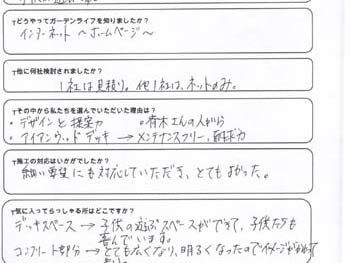 Tどうやってガーデンライフを知りましたか?
インターネット 〜ホームページ〜
T他に何社検討されましたか?
1社は見積り。他1社は、ネットのみ。
Tその中から私たちを選んでいただいた理由は?
・デザインと提案力 ・青木さんの人がら
・アイアンウッドデッキ → メンテナンスフリー、耐久力
T施工の対応はいかがでしたか?
細い要望にも対応していただき、とてもよかった。
T気に入ってらっしゃる所はどこですか?
デッキスペース → 子供の遊ぶスペースができて、子供たちも
喜んでいます。
コンクリート部分 → とても広くなり、明るくなったのでイメージが